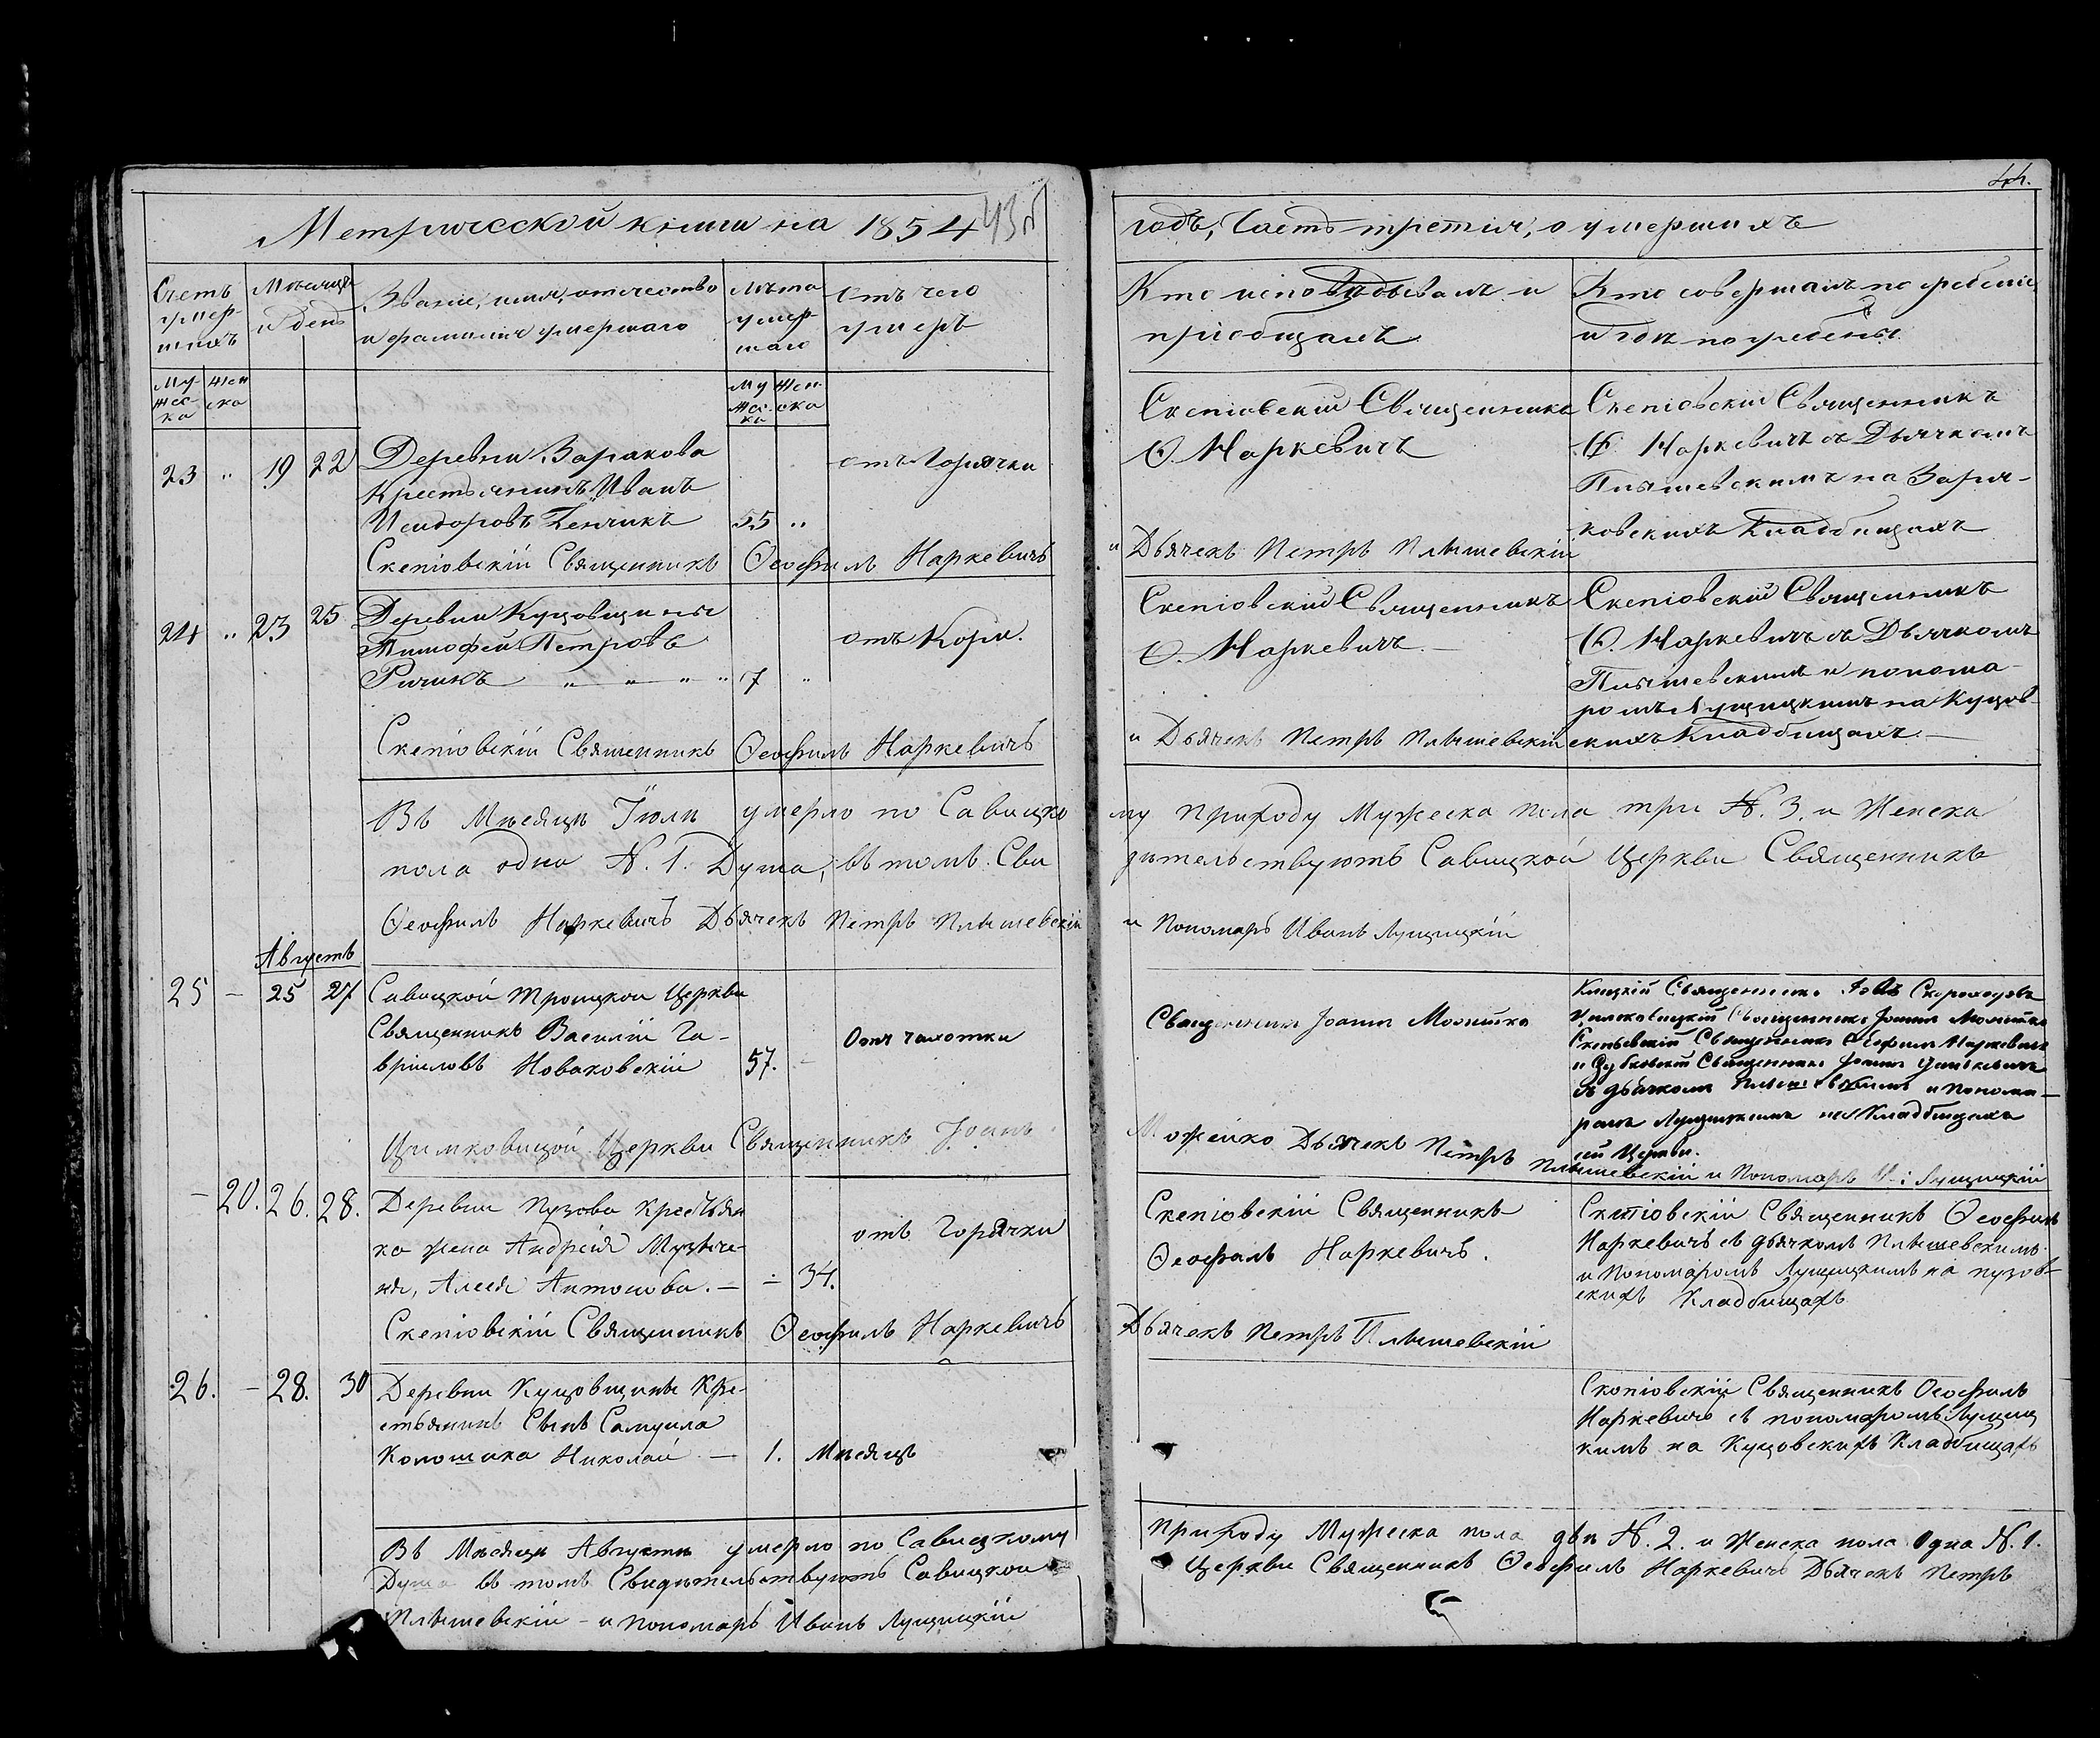 Метрической книги на 1854
годъ, Часть третія, о умершихъ
Счетъ умер- шихъ
Мѣсяцъ и день
Званіе, имя, отечество
и фамилія умершаго
Лѣта умер- шаго
Отъ чего умеръ
Кто исповѣдывалъ и пріобщалъ
Кто совершалъ погребеніе
и гдѣ погребены
Му- жес- ка
Жен ска
Му жес- ка
Жен- ска
23 " 19 22 Деревни Заракова
Крестьянинъ Иванъ
Исидоровъ 55 "
отъ Горячки
Скепіовскій Священникъ Ѳеофилъ Наркевичъ
Скепіовскій Священникъ
Ѳ. Наркевичъ
и Дьячекъ Петръ Плышевскій
Скепіовскій Священникъ
Ѳ. Наркевичъ съ Дьячкомъ
Плышевскимъ на Заря-
ковскихъ Кладбищахъ
24 " 23 25 Деревни Куцовщины
Тимофей Петровъ
Ричикъ " " " " 7 "
отъ Кори.
Скепіовскій Священникъ Ѳеофилъ Наркевичъ
Скепіовскій Священникъ
Ѳ. Наркевичъ. —
и Дьячекъ Петръ Плышевскій
Скепіовскій Священникъ
Ѳ. Наркевичъ съ Дьячкомъ
Плышевскимъ и понома-
ромъ Лущицкимъ на Куцов-
скихъ Кладбищахъ. —
Въ Мѣсяцѣ Іюлѣ умерло по Савицко
му приходу Мужеска пола три N. 3. и Женска
пола одна N. 1. Душа, въ томъ Сви
дѣтельствуютъ Савицкой Церкви Священникъ
Ѳеофилъ Наркевичъ Дьячекъ Петръ Плышевскій
и Пономаръ Иванъ Лущицкій
Августъ
25 — 25 27 Савицкой Троицкой Церкви
Священникъ Василій Га-
вріиловъ Новаковскій 57. -
Отъ чахотки
Цимковицкой Церкви Священникъ Іоанъ
Можейко Дьячекъ Петръ Плышевскій и Пономаръ И: Лущицкій
Священникъ Іоаннъ Можейко
Клецкій Священникъ
Цимковицкій Священникъ Іоаннъ Можейко
Скепіевскій Священникъ Ѳеофилъ Наркевичъ
и Священникъ Іоаннъ
съ дьячкомъ Плышевскимъ и Понома-
ромъ Лущицкимъ на Кладбищахъ
сей Церкви.
— 20. 26. 28. Деревни Пузова Крестьян
ка жена Андрея Музыче-
ня, Алеся Антонова. — - 34.
отъ Горячки
Скепіовскій Священникъ Ѳеофилъ Наркевичъ
Скепіовскій Священникъ
Ѳеофилъ Наркевичъ.
Дьячекъ Петръ Плышевскій
Скепіовскій Священникъ Ѳеофилъ
Наркевичъ съ дьячкомъ Плышевскимъ
и Пономаромъ Лущицкимъ на пузов-
скихъ Кладбищахъ
26. — 28. 30 Деревни Куцовщины Кре-
стьянинъ Сынъ Самуила
Колошика Николай — 1. Мѣсяцъ
Скепіовскій Священникъ Ѳеофилъ
Наркевичъ съ пономаромъ Лущиц
кимъ на Куцовскихъ Кладбищахъ
Въ Мѣсяцѣ Августѣ умерло по Савицкому
Приходу Мужеска пола двѣ N. 2. и Женска пола одна N. 1.
Душа въ томъ Свидѣтельствуютъ Савицкой
Церкви Священникъ Ѳеофилъ Наркевичъ Дьячекъ Петръ
Плышевскій - и пономаръ Иванъ Лущицкій